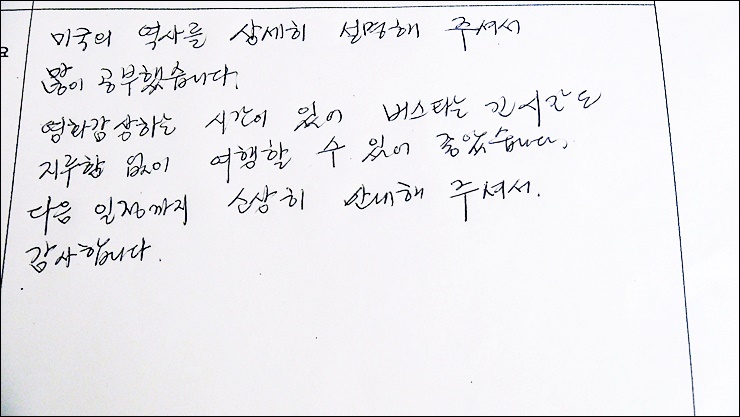 미국의 역사를 상세히 설명해 주셔서
많이 공부했습니다.
영화감상하는 시간이 있어 버스타는 긴시간도
지루함 없이 여행할 수 있어 좋았습니다.
다음 일정까지 소상히 안내해 주셔서.
감사합니다.